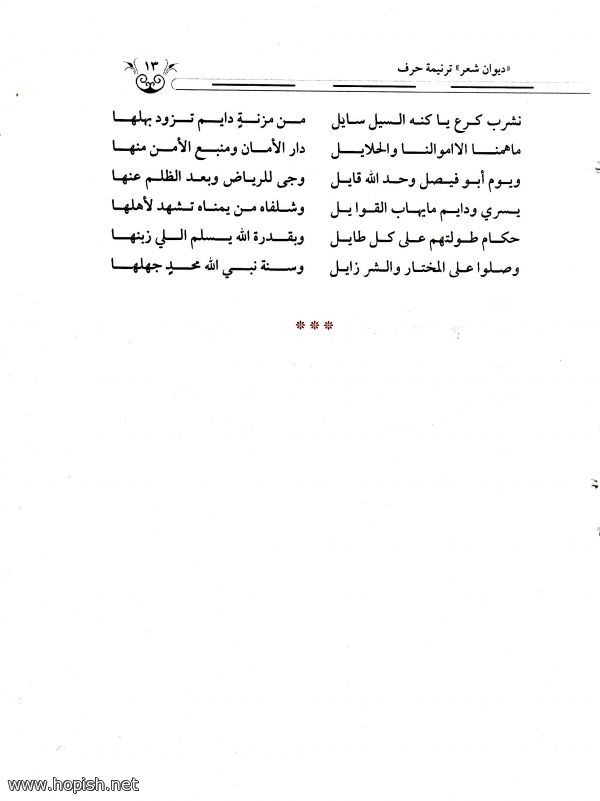 «ديوان شعر» ترنيمة حرف
١٣
نشرب كرع يا كنه السيل سايل من مزنةٍ دايم تزود بهلها
ماهمنا الااموالنا والحلايل دار الأمان ومنبع الأمن منها
ويوم أبو فيصل وحد الله قايل وجى للرياض وبعد الظلم عنها
يسري ودايم مايهاب القوا يل وشلفاه من يمناه تشهد لأهلها
حكام طولتهم على كل طايل وبقدرة الله يسلم اللي زبنها
وصلوا على المختار والشر زايل وسنة نبي الله محدٍ جهلها
www.hopish.net